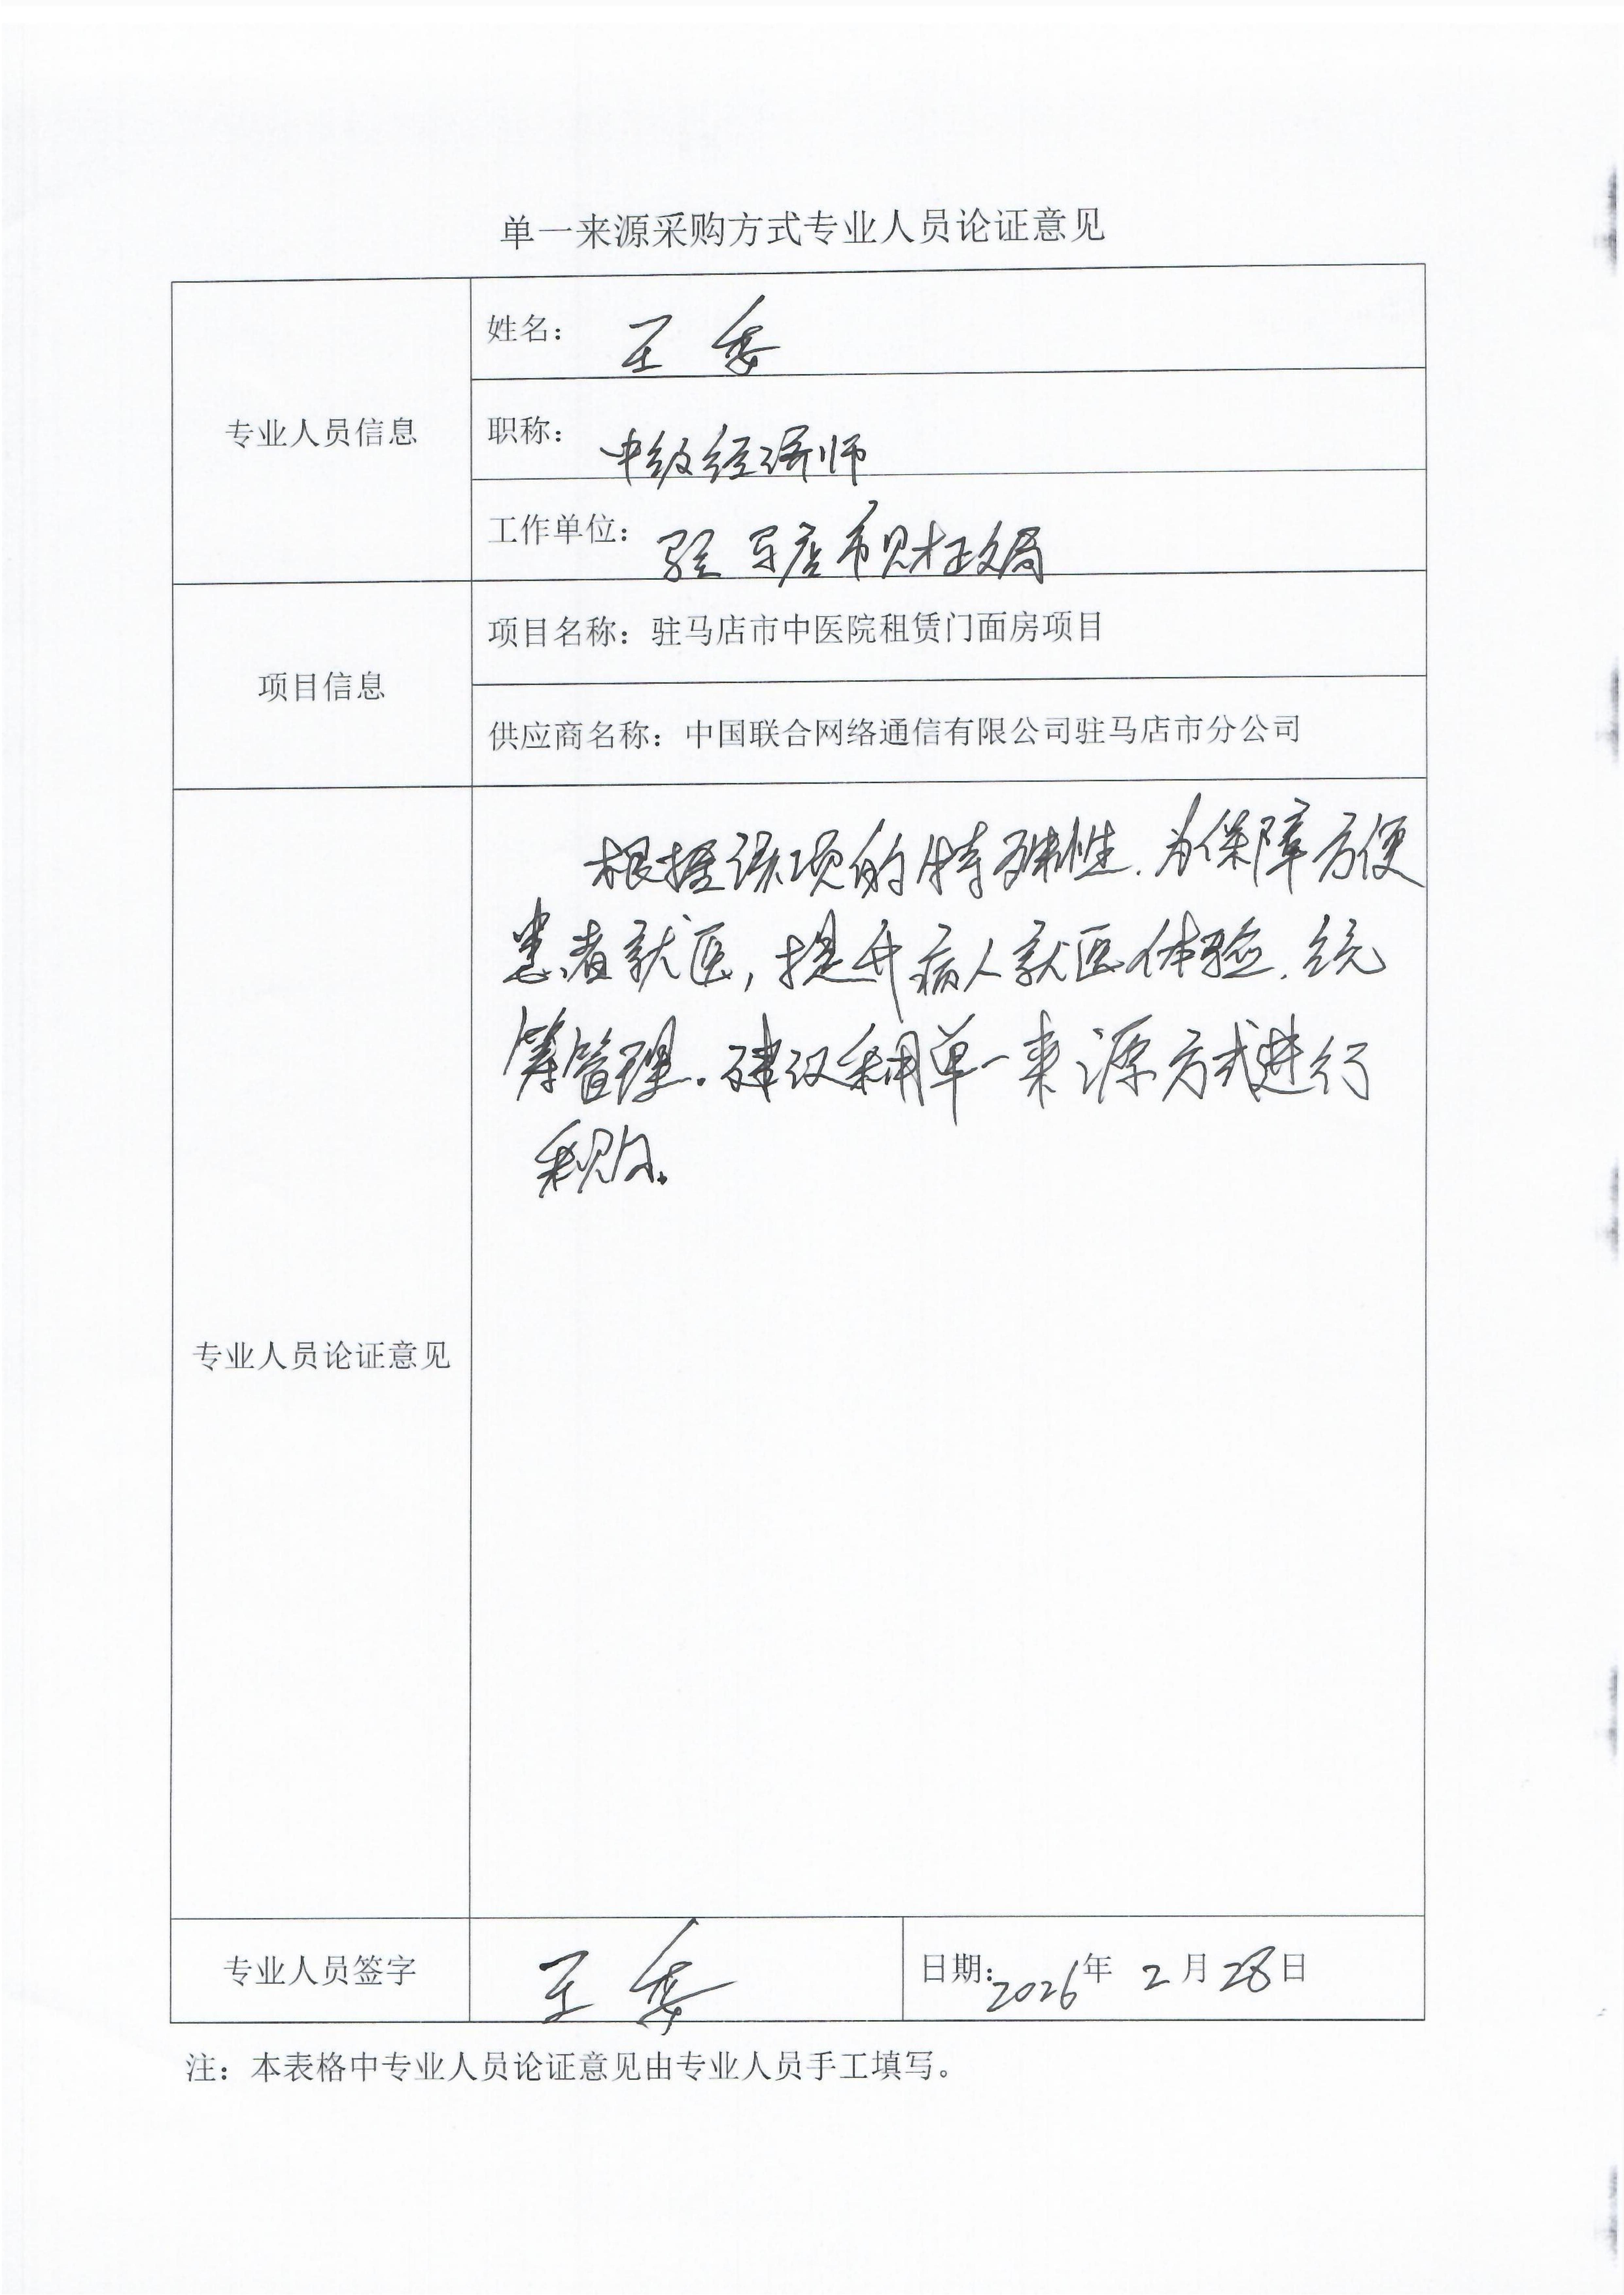 单一来源采购方式专业人员论证意见
专业人员信息
姓名： 王委
职称： 中级经济师
工作单位： 驻马店市财政局
项目信息
项目名称：驻马店市中医院租赁门面房项目
供应商名称：中国联合网络通信有限公司驻马店市分公司
专业人员论证意见
根据该项的特殊性，为保障方便
患者就医，提升病人就医体验，统
筹管理。建议采用单一来源方式进行
采购。
专业人员签字
王委
日期：2026年 2月28日
注：本表格中专业人员论证意见由专业人员手工填写。